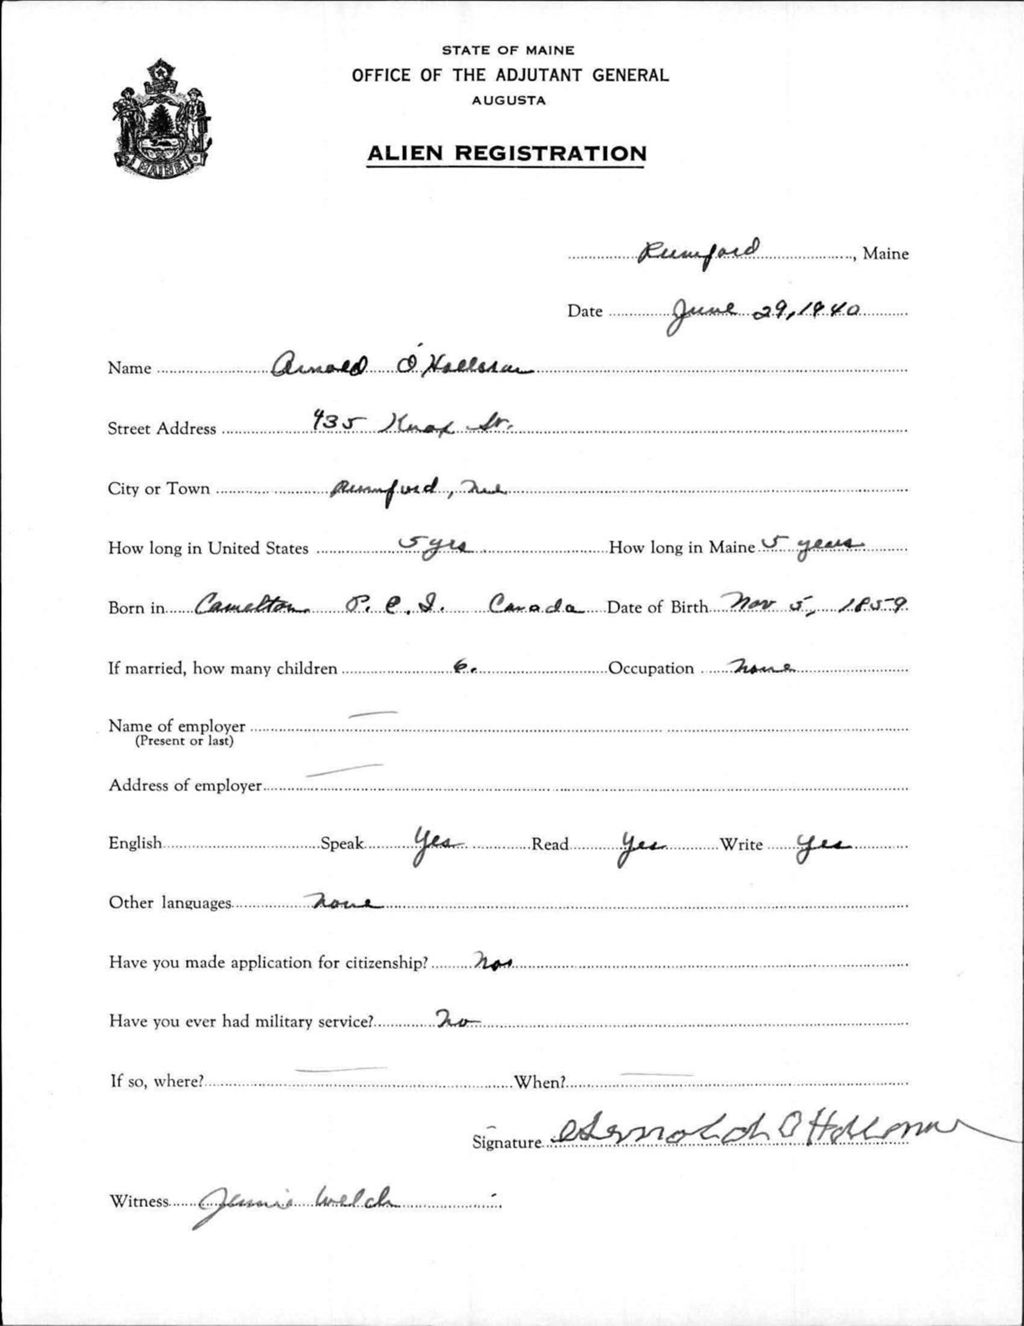 STATE OF MAINE
OFFICE OF THE ADJUTANT GENERAL
AUGUSTA
MAINE
ALIEN REGISTRATION
Rumford, Maine
Date June 29, 1940
Name Arnold O'Holloran
Street Address 435 Knox St.
City or Town Rumford, Me
How long in United States 5 yrs How long in Maine 5 years
Born in P. E. I. Canada Date of Birth Nov 5, 1859
If married, how many children 6. Occupation None
Name of employer —
(Present or last)
Address of employer —
English Speak Yes Read Yes Write Yes
Other languages None
Have you made application for citizenship?
Have you ever had military service? No
If so, where? — When? —
Signature Arnold O Holloran
Witness Jennie Welch